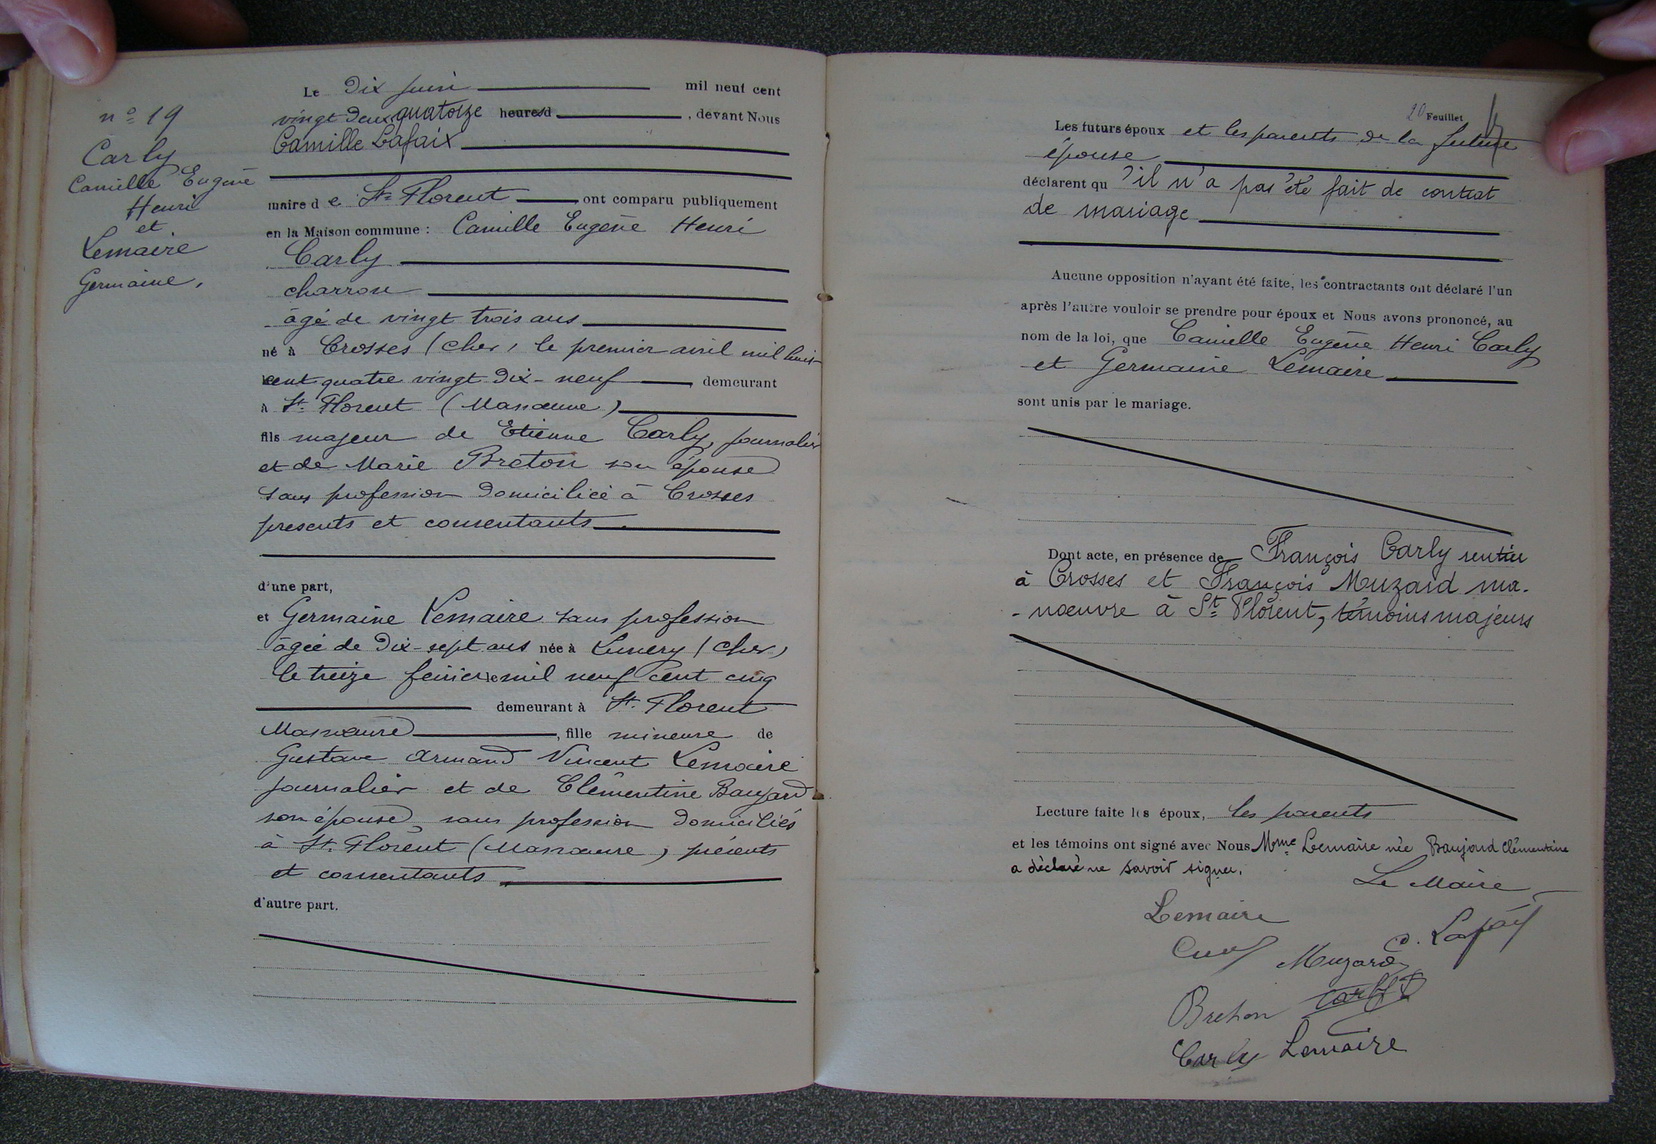 n° 19
Carly
Camille Eugène
Henri
et
Lemaire
Germaine,
Le Dix juin mil neuf cent
vingt deux quatoize heures/d , devant Nous
Camille Lafaix
maire d e St Florent ont comparu publiquement
en la Maison commune : Camille Eugène Henri
Carly
charron
âgé de vingt trois ans
né à Crosses (cher, le premier avril mil huit
cent quatre vingt Dix-neuf , demeurant
à St Florent (Massœuvre)
fils majeur de Etienne Carly, journalier
et de Marie Breton son épouse
sans profession Domiciliée à Crosses
presents et consentants
d'une part,
et Germaine Lemaire sans profession
âgée de Dix-sept ans née à Lunery (cher,
le treize février mil neuf cent cinq
demeurant à St Florent
Massœuvre , fille mineure de
Gustave Armand Vincent Lemaire
journalier et de Clémentine Baujard
son épouse sans profession Domiciliés
à St Florent (Massœuvre, présents
et consentants
d'autre part.
20 Feuillet
Les futurs époux et les parents de la future
épouse
déclarent qu 'il n'a pas été fait de contrat
de mariage
Aucune opposition n'ayant été faite, les contractants ont déclaré l'un
après l'autre vouloir se prendre pour époux et Nous avons prononcé, au
nom de la loi, que Camille Eugène Henri Carly
et Germaine Lemaire
sont unis par le mariage.
Dont acte, en présence de François Carly rentier
à Crosses et François Muzard ma-
-nœuvre à St Florent, témoins majeurs
Lecture faite les époux, les parents
et les témoins ont signé avec Nous Mme Lemaire née Baujard Clémentine
a déclaré ne savoir signer.
Le Maire
Lemaire
C. Lafaix
Muzard
Breton
Carly Lemaire